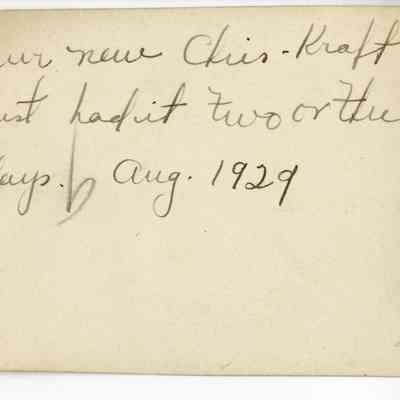 ur new Chris-Kraft
ust had it two or thre
days. Aug. 1929